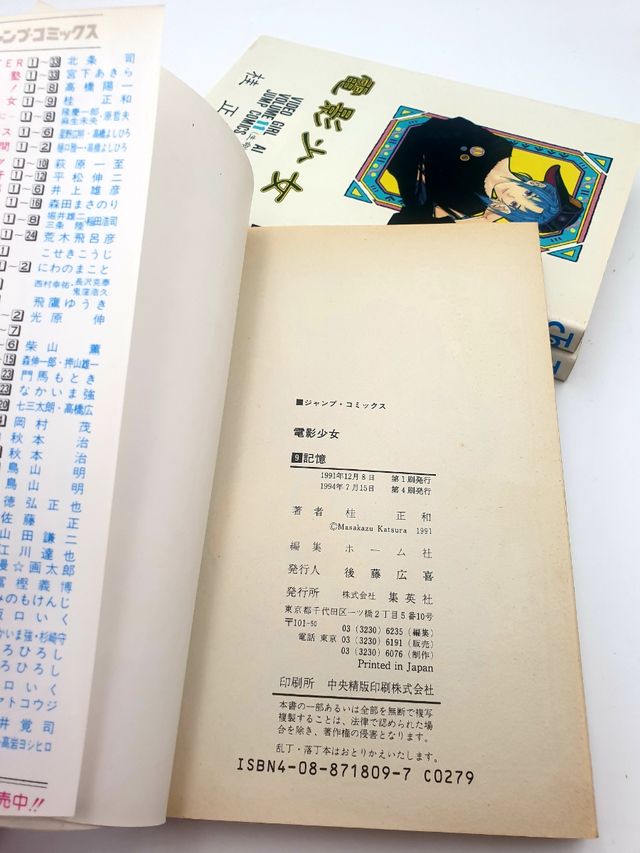 ャンプ・コミックス
TER 1~33 北条司
塾 1~33 宮下あきら
! 1~8 高橋陽一
女 1~9 桂正和
1~8 隆慶一郎・原哲夫 麻生未央
ス 1~6
間 1~2
1~10 萩原一至
1~12 平松伸二
1~6 井上雄彦
1~16 森田まさのり
1~8 堀井雄二 三条陸 稲田浩司
1~24 荒木飛呂彦
こせきこうじ
1~2 にわのまこと
西村幸祐・長沢克泰 鬼窪浩久
飛鷹ゆうき
~2 光原伸
~7
~6 柴山薫
~15 森伸一郎・押山雄一
23 門馬もとき
23 なかいま強
20 七三太郎・高橋広
岡村茂
秋本治
秋本治
鳥山明
鳥山明
徳弘正也
佐藤正
山田謙二
江川達也
漫☆画太郎
冨樫義博
みのもけんじ
坂口いく
かいま強・杉崎守
ろひろし
ろひろし
口いく
アトコウジ
井覚司
高岩ヨシヒロ
売中!!
電影少女
VIDEO GIRL AI
VOLUME
JUMP COMICS
桂正
■ジャンプ・コミックス
電影少女
9記憶
1991年12月8日 第1刷発行
1994年7月15日 第4刷発行
著者 桂正和
©Masakazu Katsura 1991
編集 ホーム社
発行人 後藤広喜
発行所 株式会社 集英社
東京都千代田区一ツ橋2丁目5番10号
〒101-50
03 (3230) 6235 (編集)
電話 東京 03 (3230) 6191 (販売)
03 (3230) 6076 (制作)
Printed in Japan
印刷所 中央精版印刷株式会社
本書の一部あるいは全部を無断で複写
複製することは、法律で認められた場
合を除き、著作権の侵害となります。
乱丁・落丁本はおとりかえいたします。
ISBN4-08-871809-7 C0279